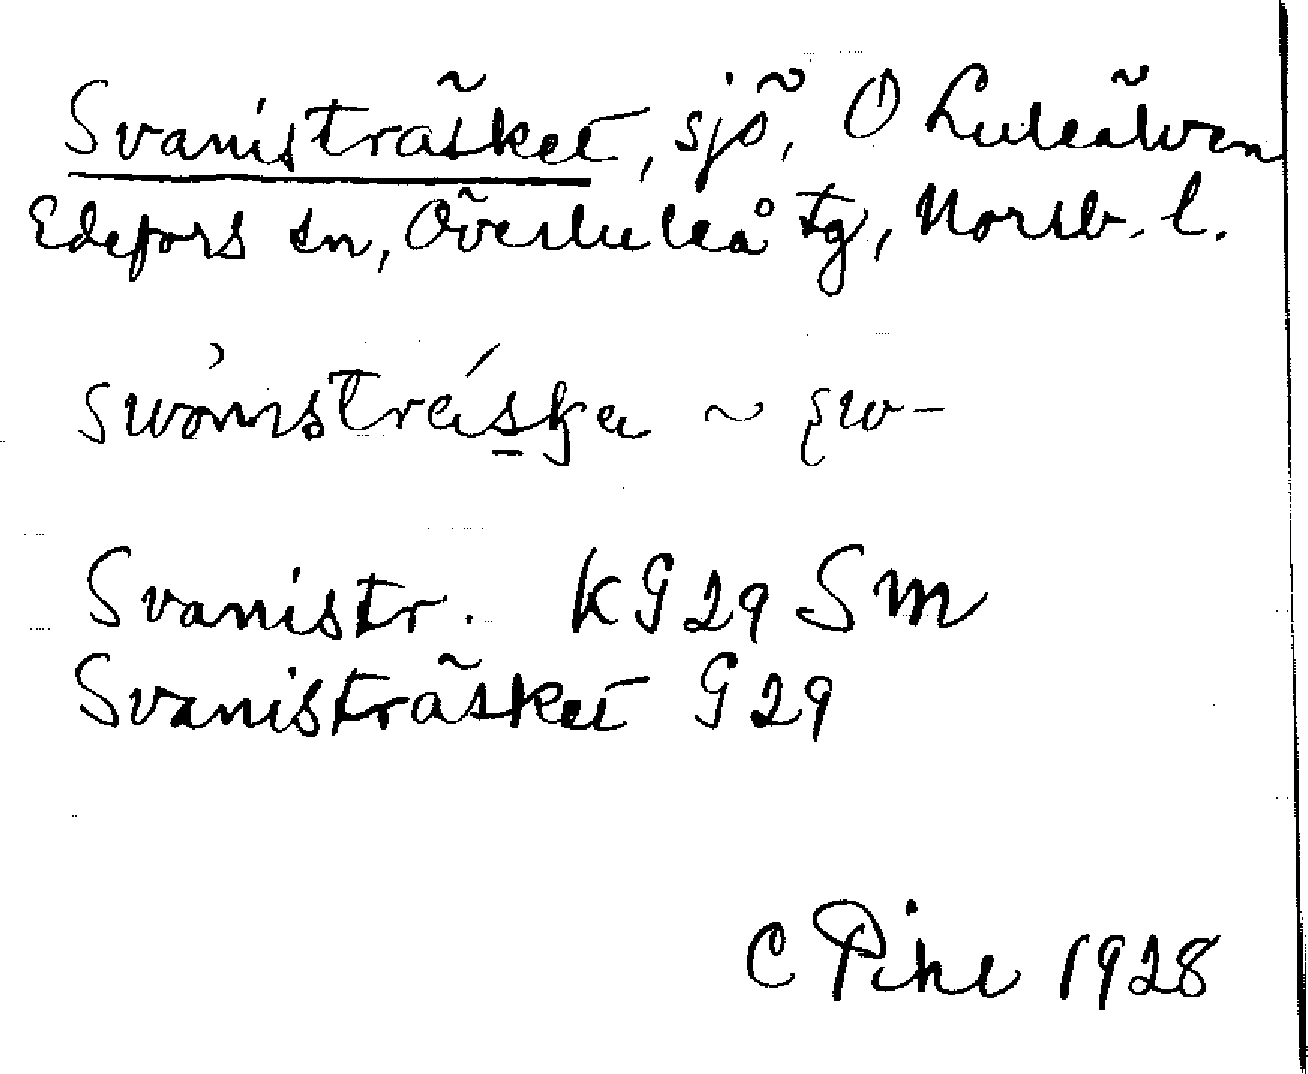 Svanisträsket, sjö, O Luleälven
Edefors sn, Överluleå tg, Norrb. l.
svanisträska ~ sv-
Svanistr. KG29 Sm
Svanisträsket G29
C Pihl 1928